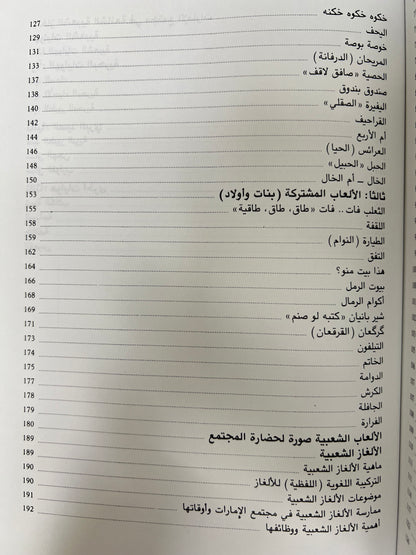 خكوه خكوه خكنه 127
اليحف 129
خوصة بوصة 131
المريحان (الدرفانة) 132
الحصية «صافق لاقف» 137
صندوق بندوق 138
اليفيرة «الصقلي» 140
القراحيف 142
أم الأربع 144
العرائس (الحيا) 147
الحبل «الحبيل» 148
الخال – أم الخال 150
ثالثا: الألعاب المشتركة (بنات وأولاد) 153
الثعلب فات.. فات «طاق، طاق، طاقية» 155
اللقفة 158
الطيارة (النوام) 159
التفق 162
هذا بيت منو؟ 164
بيوت الرمل 166
أكوام الرمال 168
شبر بانيان «كتبه لو صنم» 169
گرگعان (القرقعان) 171
التيلفون 173
الخاتم 174
الدوامة 175
الكرش 176
الجافلة 178
الفرارة 180
الألعاب الشعبية صورة لحضارة المجتمع 189
الألغاز الشعبية 189
ماهية الألغاز الشعبية 190
التركيبة اللغوية (اللفظية) للألغاز 190
موضوعات الألغاز الشعبية 191
ممارسة الألغاز الشعبية في مجتمع الإمارات وأوقاتها 192
أهمية الألغاز الشعبية ووظائفها